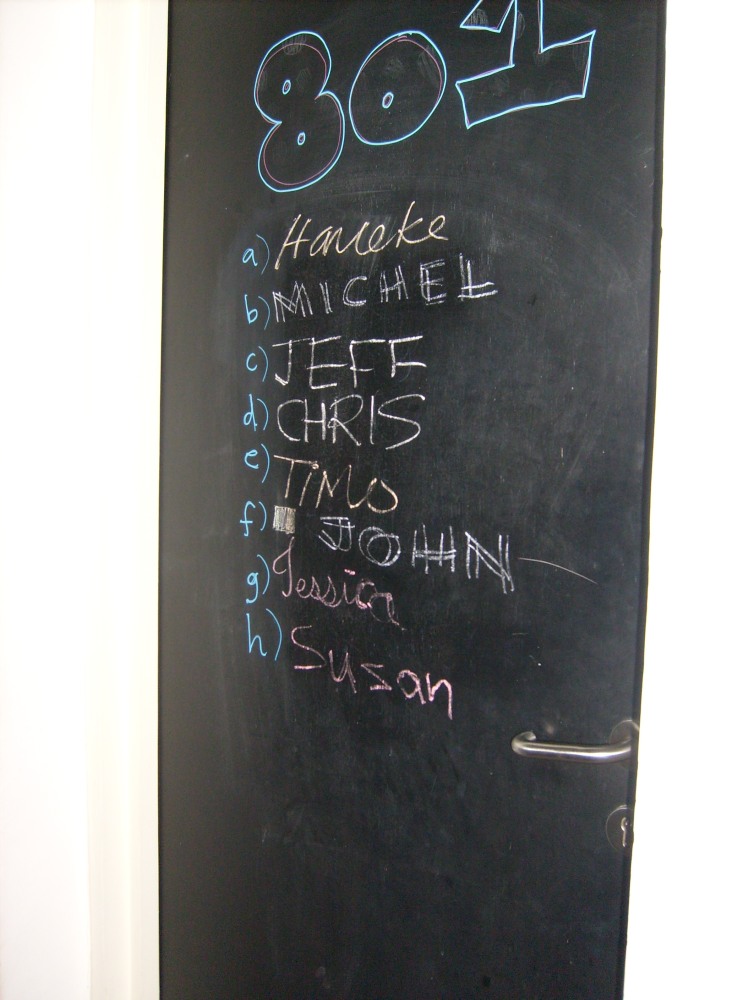 801
a) Hanneke
b) MICHEL
c) JEFF
d) CHRIS
e) TiMO
f) JOHN
g) Jessica
h) Susan